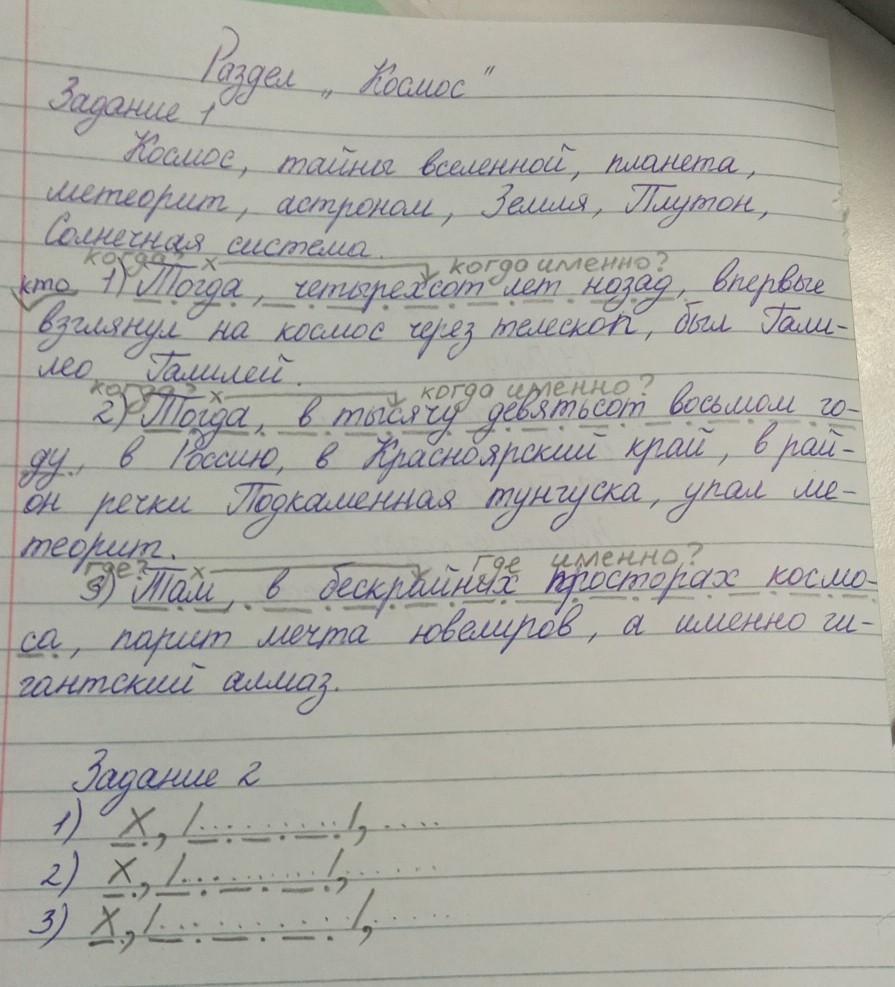 Раздел „Космос"
Задание 1
Космос, тайны вселенной, планета,
метеорит, астроном, Земля, Плутон,
Солнечная система.
когда? х когда именно?
кто 1) Тогда, четырехсот лет назад, впервые
взглянул на космос через телескоп, был Гали-
лео Галилей.
когда? х когда именно?
2) Тогда, в тысячу девятьсот восьмом го-
ду, в Россию, в Красноярский край, в рай-
он речки Подкаменная тунгуска, упал ме-
теорит.
где? х где именно?
3) Там, в бескрайних просторах космо-
са, парит мечта ювелиров, а именно ги-
гантский алмаз.
Задание 2
1) Х, /........./, ....
2) Х, /........./, ......
3) Х, /........./, .....